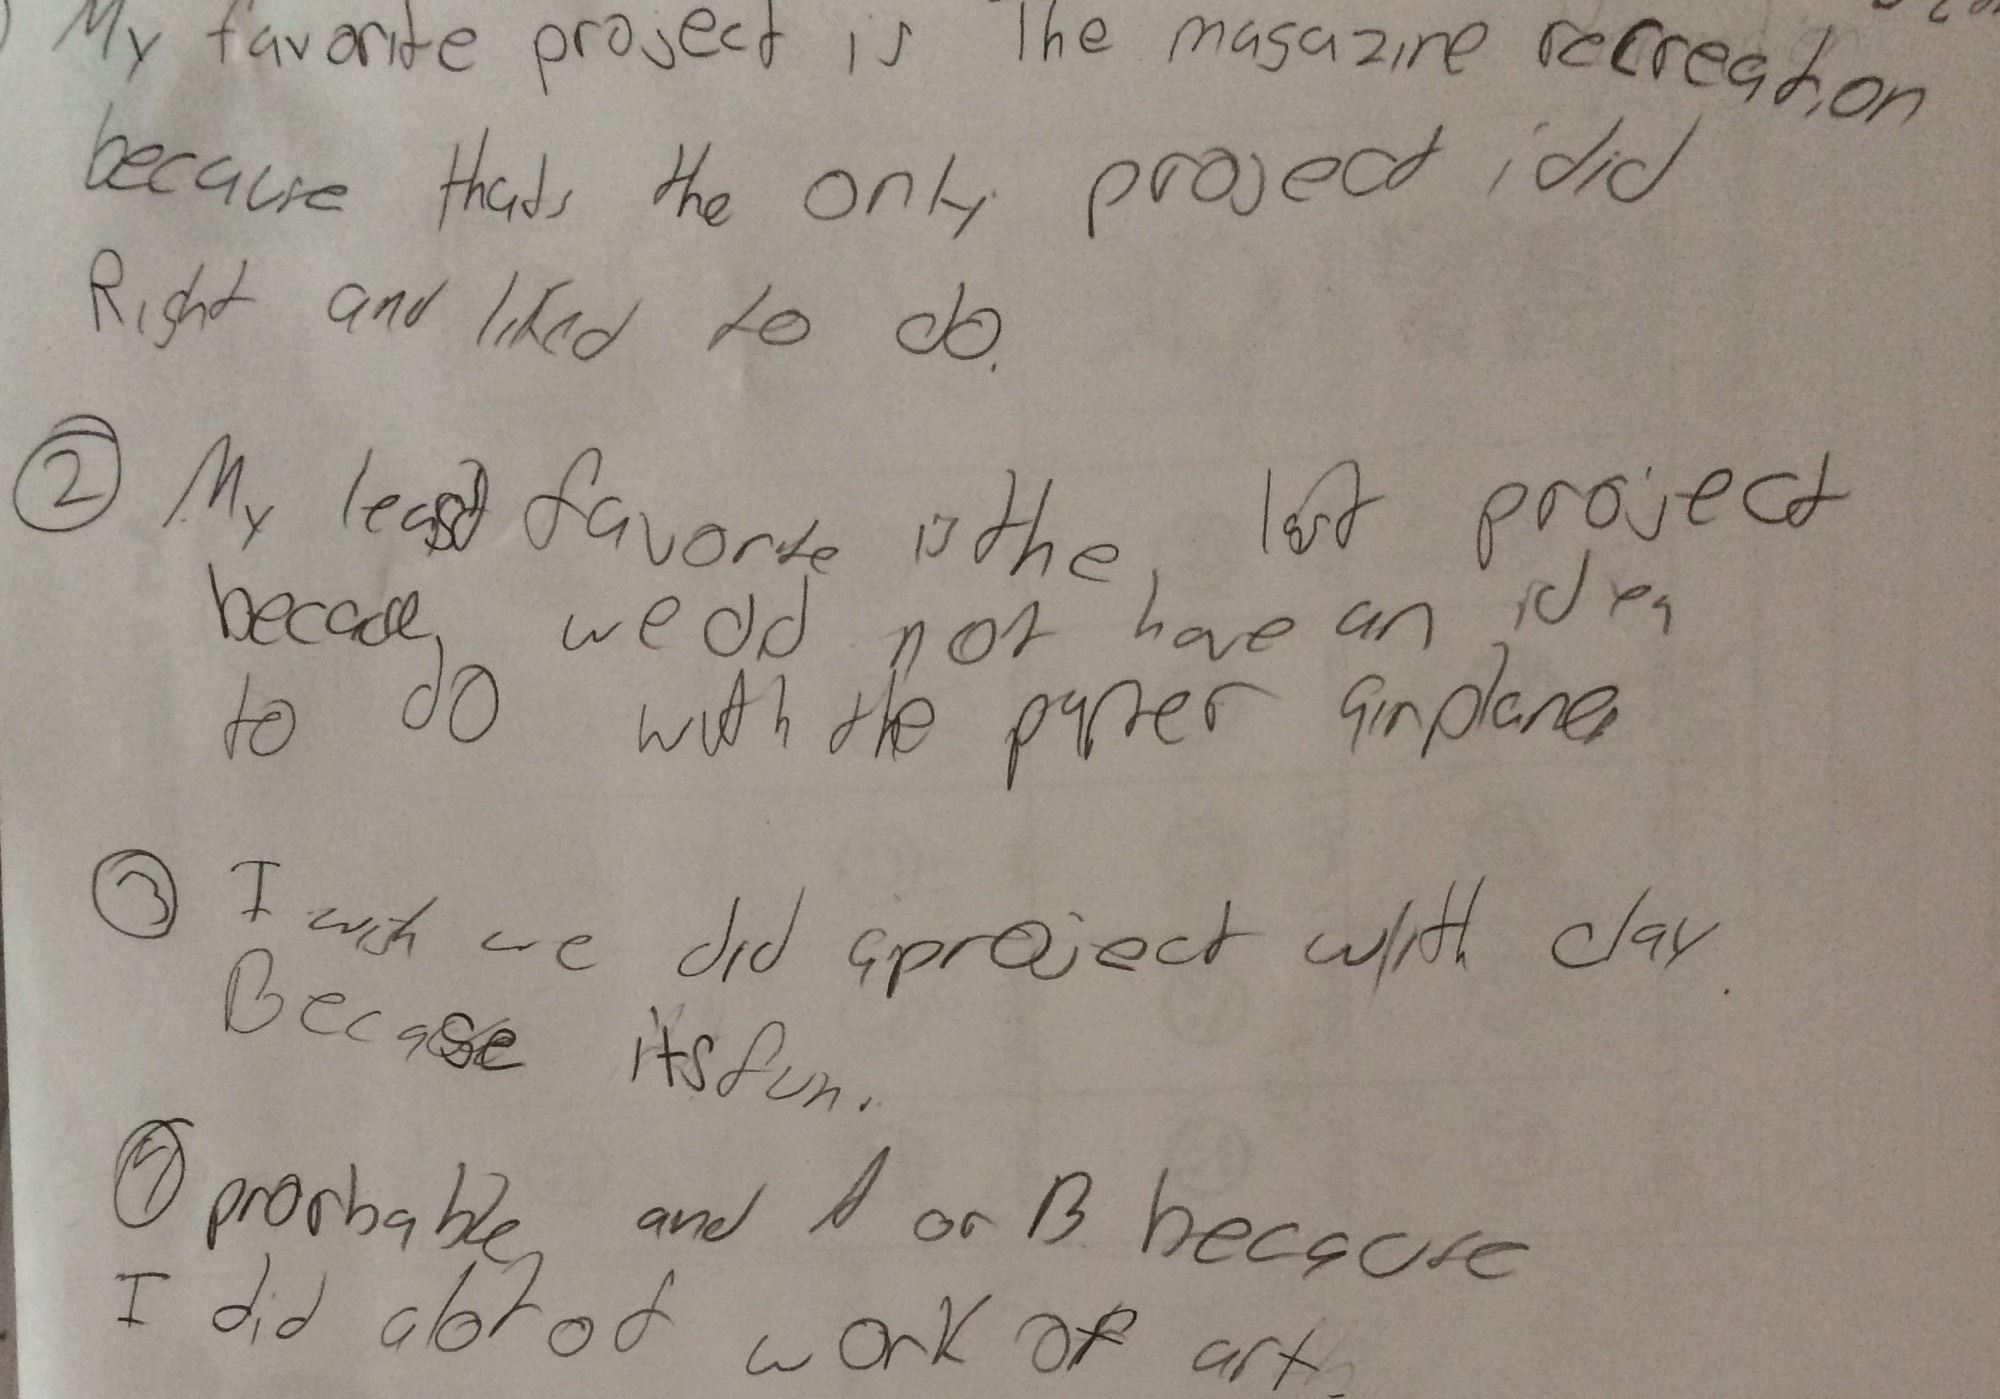 ) My favorite project is The magazine recreation
because thats the only project i did
Right and liked to do.
② My least favorite is the last project
because we did not have an idea
to do with the paper airplanes
③ I wish we did a project with clay.
Because its fun.
④ prorbable and A or B because
I did alot of work of art.